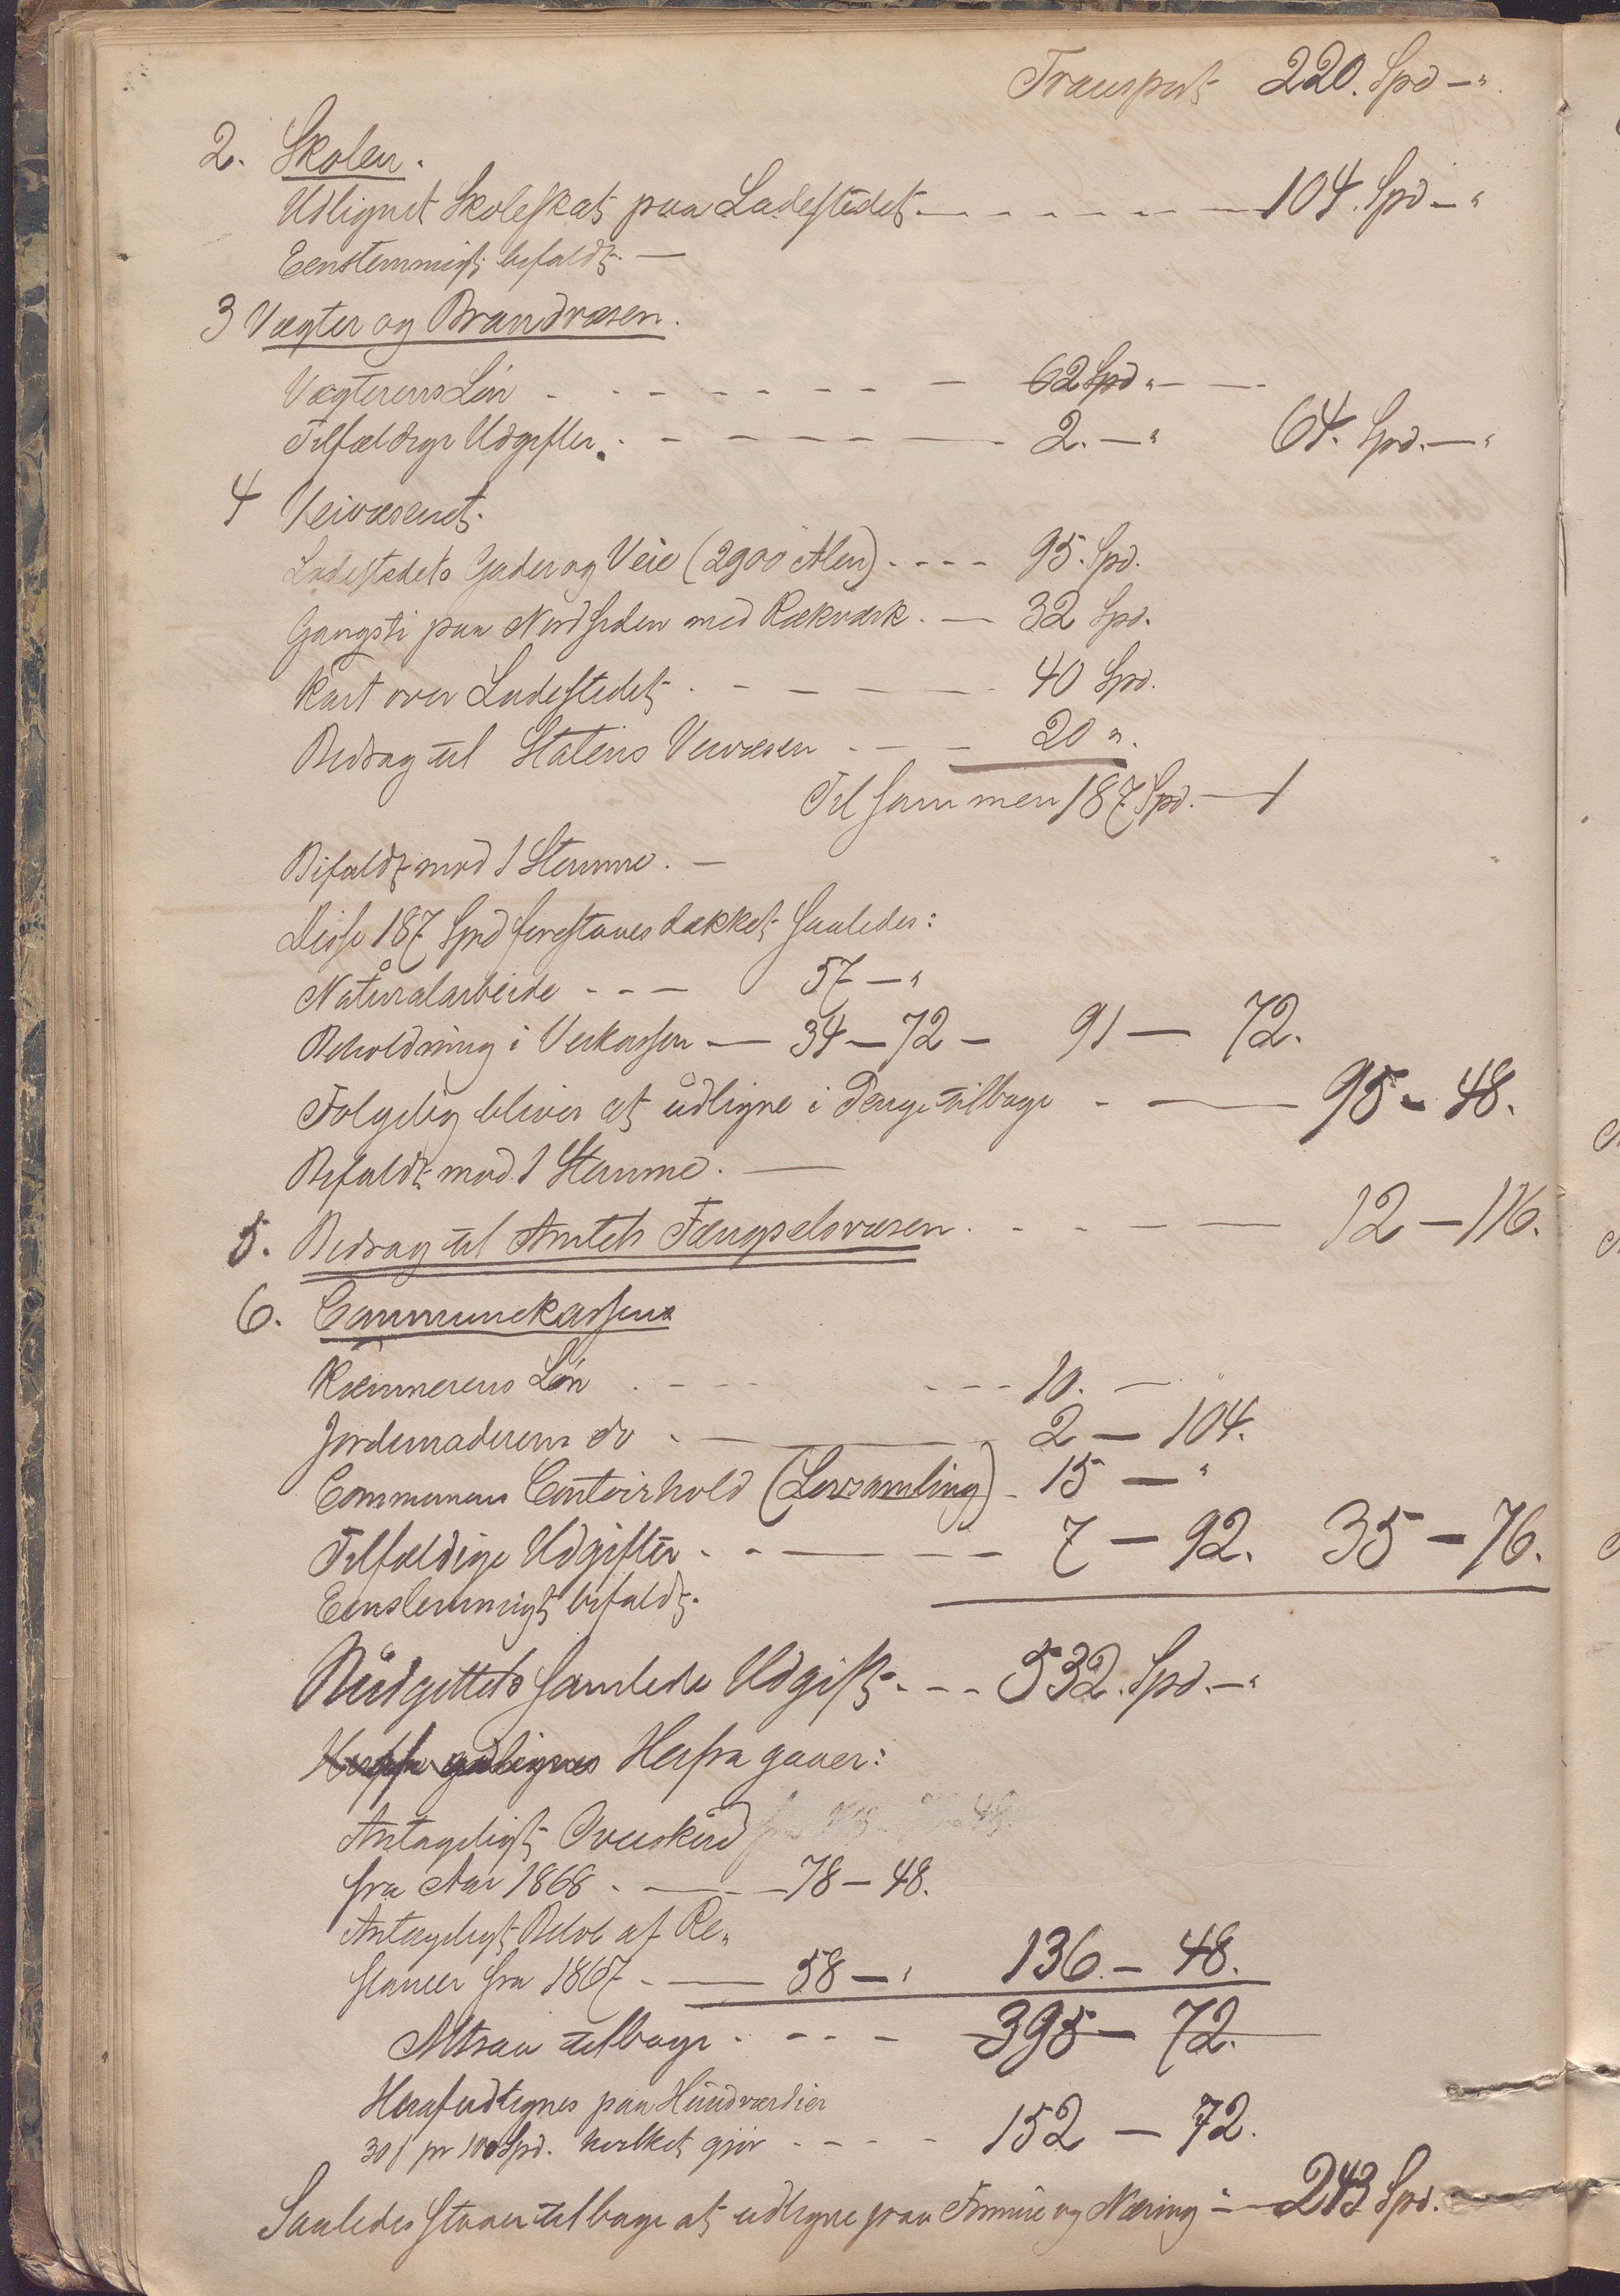 Transport 220. Spd —"
2. Skolen.
Udlignet Skoleskat paa Ladestedet — 104. Spd — "
Eenstemmigt bifaldt. —
3 Vægter og Brandvæsen.
Vægterens Løn - - - - 62 Spd " —
Tilfældige Udgifter. - - - - 2. — " 64. Spd. — "
4 Veivæsenet.
Ladestedets Gader og Veie (2900 Alen) - - - - 95. Spd.
Gangsti paa Nordsiden med Rækværk. — 32 Spd.
Kart over Ladestedet - - - - 40 Spd.
Bidrag til Statens Veivæsen - - - 20 ".
Tilsammen 187 Spd. —
Bifaldt mod 1 Stemme. —
Disse 187 Spd foreslaaes dækket saaledes:
Naturalarbeide - - - 57 — "
Beholdning i Veikassen — 34 — 72 — 91 — 72.
Følgelig bliver at udligne i Penge tilbage - — 95 - 48.
Bifaldt mod 1 Stemme. —
5. Bidrag til Amtets Fængselsvæsen. - - - 12 — 116.
6. Communekassen
Kæmnerens Løn - - - - 10. — "
Jordemoderens do - — 2 — 104.
Communens Contoirhold (Lovsamling) - 15 — "
Tilfældige Udgifter - - — 7 — 92. 35 — 76.
Eenstemmigt bifaldt.
Budgettets samlede Udgift - - - 532. Spd. — "
Herfra gaaer:
Antageligt Overskud
fra Aar 1868 - — 78 — 48.
Antageligt Beløb af Re„
stancer fra 1867 - — 58 — " 136. — 48.
Altsaa tilbage - - - - 395 — 72.
Heraf udlignes paa Huusværdier
30 ß pr 100 Spd. hvilket gjør - - - - 152 — 72.
Saaledes staaer tilbage at udligne paa Formue og Næring - — 243 Spd. —